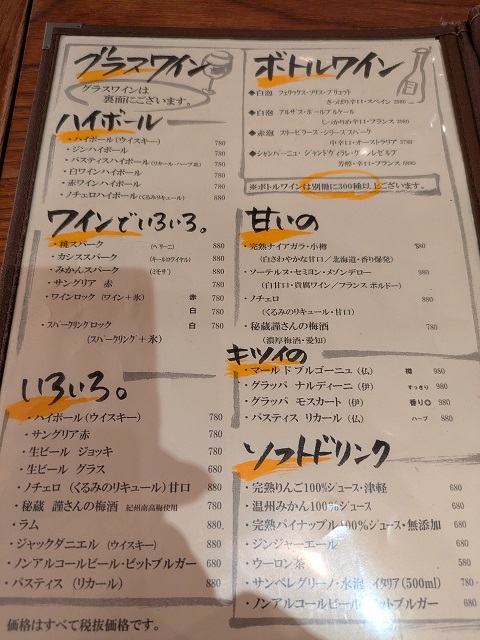 グラスワイン
グラスワインは
裏面にございます。
ハイボール
・ハイボール(ウイスキー) 780
・ジンハイボール 780
・パスティスハイボール(リキュール・ハーブ系) 780
・白ワインハイボール 780
・赤ワインハイボール 780
・ノチェロハイボール(くるみリキュール) 880
ワインでいろいろ。
・桃スパーク (ベリーニ) 880
・カシススパーク (キールロワイヤル) 880
・みかんスパーク (ミモザ) 880
・サングリア 赤 780
・ワインロック(ワイン+氷) 赤 780
白 780
・スパークリングロック 白 780
(スパークリング+氷)
いろいろ。
・ハイボール(ウイスキー) 780
・サングリア赤 780
・生ビール ジョッキ 780
・生ビール グラス 680
・ノチェロ(くるみのリキュール)甘口 880
・秘蔵 謹さんの梅酒 紀州南高梅使用 780
・ラム 880
・ジャックダニエル(ウイスキー) 880
・ノンアルコールビール・ビットブルガー 680
・パスティス(リカール) 880
価格はすべて税抜価格です。
ボトルワイン
◆白泡 フェリックス・ソリス・ブリュット
さっぱり辛口・スペイン 2980
◆白泡 アルザス・ボールアルケール
しっかりめ辛口・フランス 3980
◆赤泡 ストービラーズ・シラーズスパーク
中辛口・オーストラリア 3780
◆シャンパーニュ ジャンドヴィラレ・グランレゼルブ
芳醇・辛口・フランス 6980
※ボトルワインは別冊に300種以上ございます。
甘いの
・完熟ナイアガラ・小樽 780
(白さわやかな甘口/北海道・香り爆発)
・ソーテルヌ・セミヨン・メゾンデロー 980
(白甘口・貴腐ワイン/フランス ボルドー)
・ノチェロ 880
(くるみのリキュール・甘口)
・秘蔵謹さんの梅酒 780
(濃厚梅酒・愛知)
キツイの
・マール ド ブルゴーニュ(仏) 樽 980
・グラッパ ナルディーニ(伊) すっきり 980
・グラッパ モスカート(伊) 香り◎ 980
・パスティス リカール(仏) ハーブ 880
ソフトドリンク
・完熟りんご100%ジュース・津軽 680
・温州みかん100%ジュース 680
・完熟パイナップル100%ジュース・無添加 680
・ジンジャーエール 680
・ウーロン茶 580
・サンペレグリーノ・水泡 イタリア(500ml) 780
・ノンアルコールビール・ビットブルガー 680